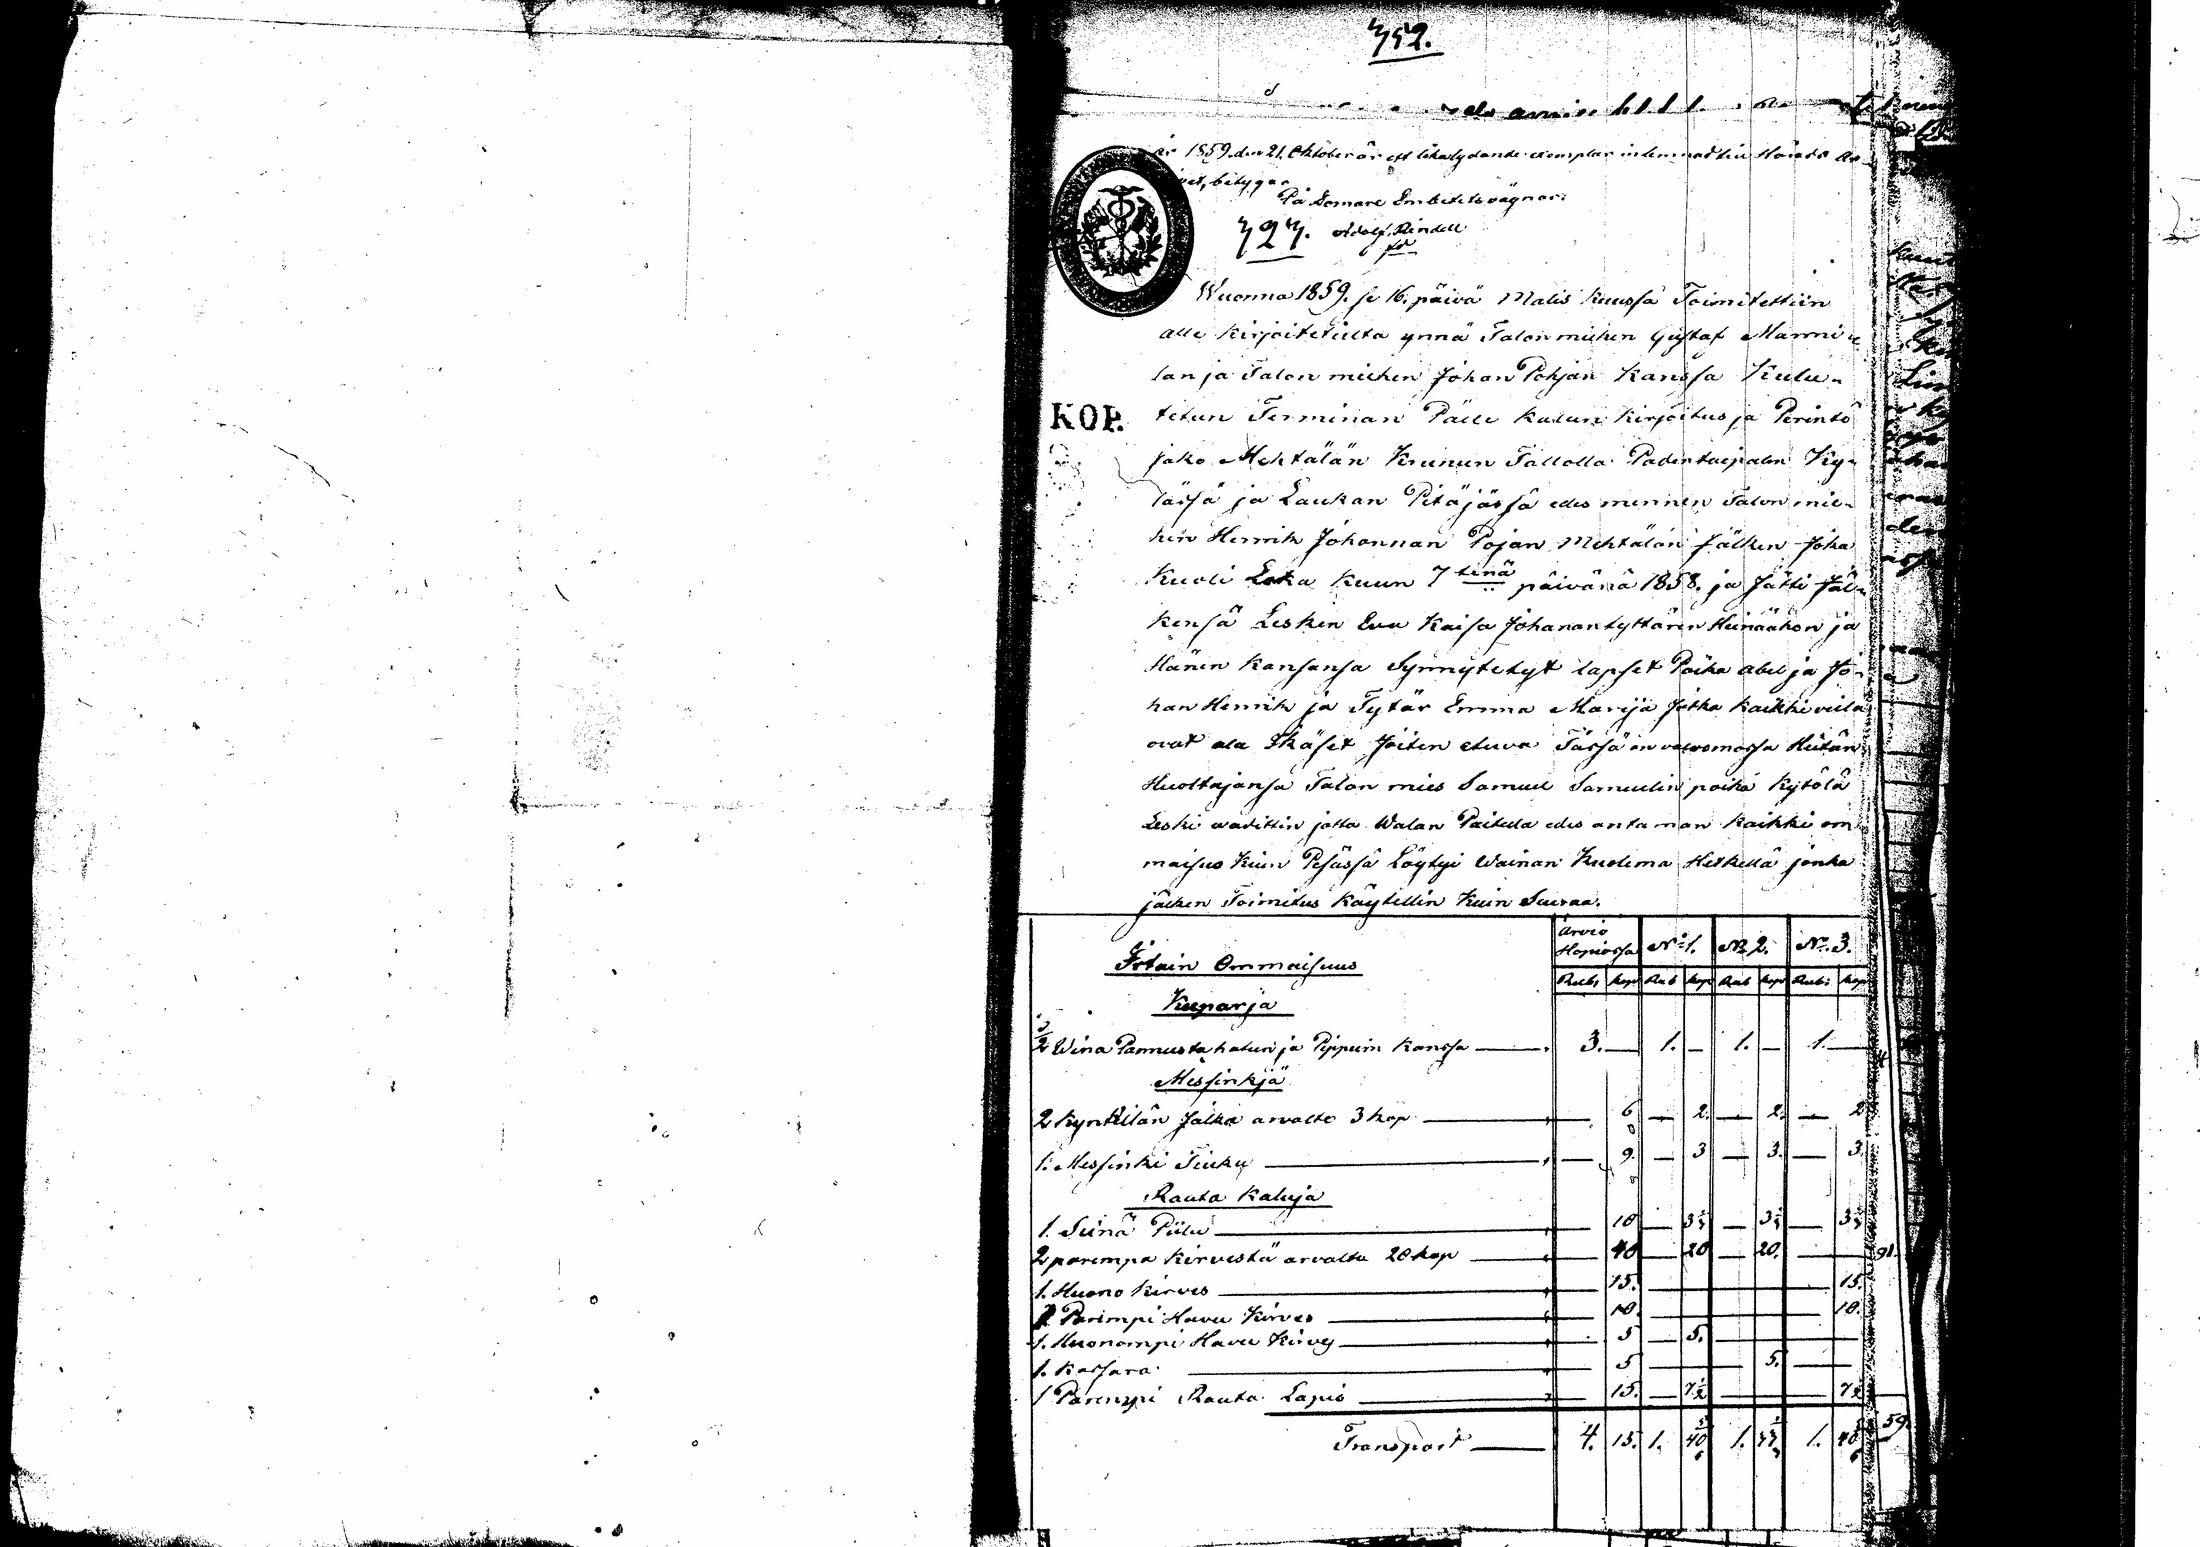 352.
år 1859. den 21. Oktober är ett likalydande exemplar inlemnadt till Härads Ar-
vet, betygar
På Domare Embetets vägnar:
727. Adolf Rindell
Wuonna 1859. se 16. päivä Malis kuussa Toimitettiin
alle kirjoitetulta ynnä Talon miehen Gustaf Manni-
lan ja Talon miehen Johan Pohjan kanssa Kulu-
KOP. tetun Terminan Päälle kalun kirjoitus ja Perintö
jako Mehtälän Krunun Tallolla Padentaipalen Ky-
lässä ja Laukan Pitäjässä edes mennen Talon mie-
hen Henrik Johannan Pojan Mehtälän jälken Joka
Kuoli Loka Kuun 7 tenä päivänä 1858. ja Jätti Jäl-
kensä Lesken Eva Kaisa Johanantyttären Heinäahon ja
Hänen kansansa Synnytetyt lapset Poika Abel ja Jo-
han Henrik ja Tytär Emma Marija Jotka kaikki vielä
ovat ala Ikäset Joiten etuva Tässä on valvomassa Heitän
Huoltajansa Talon mies Samuel Samuelin poika Kytölä
Leski vadittin jotta Walan Paitella edes antaman kaikki om
maisus kuin Pesässä Löytyi Wainan Kuolema Hetkellä jonka
jälken Toimitus käytettin kuin Seuraa.
Arvio Hopiossa N:o 1. N:o 2. N:o 3.
Irtain Ommaisuus Rub: kop Rub kop Rub kop Rub: kop
Kuparja
Wina Pannusta hatun ja Pippuin kanssa 3. — 1. — 1. — 1. —
Messinkjä
2 Kynttilän Jalka arvalta 3 kop — 6 — 2. — 2. — 2
1. Messinki Tiuku — 9. — 3 — 3. — 3.
Rauta Kaluja
1. Seinä Piilu — 10 — 3⅓ — 3⅓ — 3⅓
2 parempa kirvestä arvalta 20 kop — 40 — 20 — 20. —
1. Huono kirves — 15. — 15.
1 Parempi Havu Kirves — 10. — 10.
1. Huonompi Havu Kirves — 5 — 5. —
1. Kassara — 5 — 5. —
1 Parempi Rauta Lapio — 15. — 7½ — 7½
Transport 4. 15. 1. 40 1. 1.